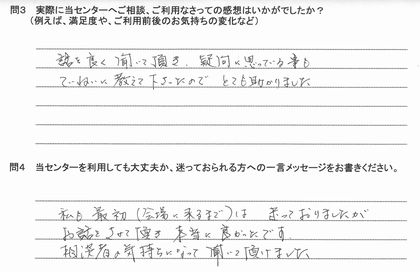 問3 実際に当センターへご相談、ご利用なさっての感想はいかがでしたか？
(例えば、満足度や、ご利用前後のお気持ちの変化など)
話を良く聞いて頂き、疑問に思っている事も
ていねいに教えて下さったので とても助かりました
問4 当センターを利用しても大丈夫か、迷っておられる方への一言メッセージをお書きください。
私も最初(会場に来るまで)は 迷っておりましたが
お話をさせて頂き 本当に良かったです。
相談者の気持ちになって聞いて頂けました